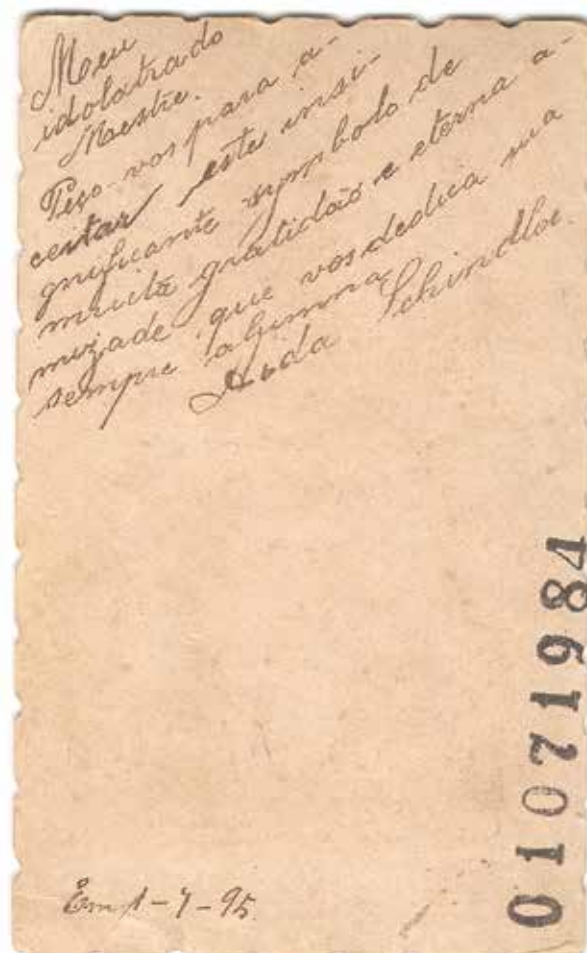 Meu
idolatrado
Mestre.
Peço-vos para a-
ceitar este insi-
gnificante symbolo de
muita gratidão e eterna a-
mizade que vos dedica sua
sempre alumna
Schindler
Em 1-7-95
01071984